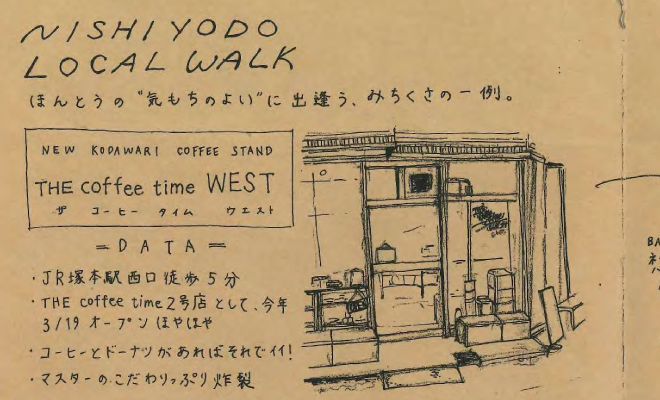 NISHIYODO
LOCAL WALK
ほんとうの"気もちのよい"に出逢う、みちくさの一例。
NEW KODAWARI COFFEE STAND
THE coffee time WEST
ザ コーヒー タイム ウエスト
=DATA=
・JR塚本駅西口徒歩5分
・THE coffee time2号店として、今年
3/19 オープンほやほや
・コーヒーとドーナツがあればそれでイイ!
・マスターのこだわりっぷり炸裂
BA